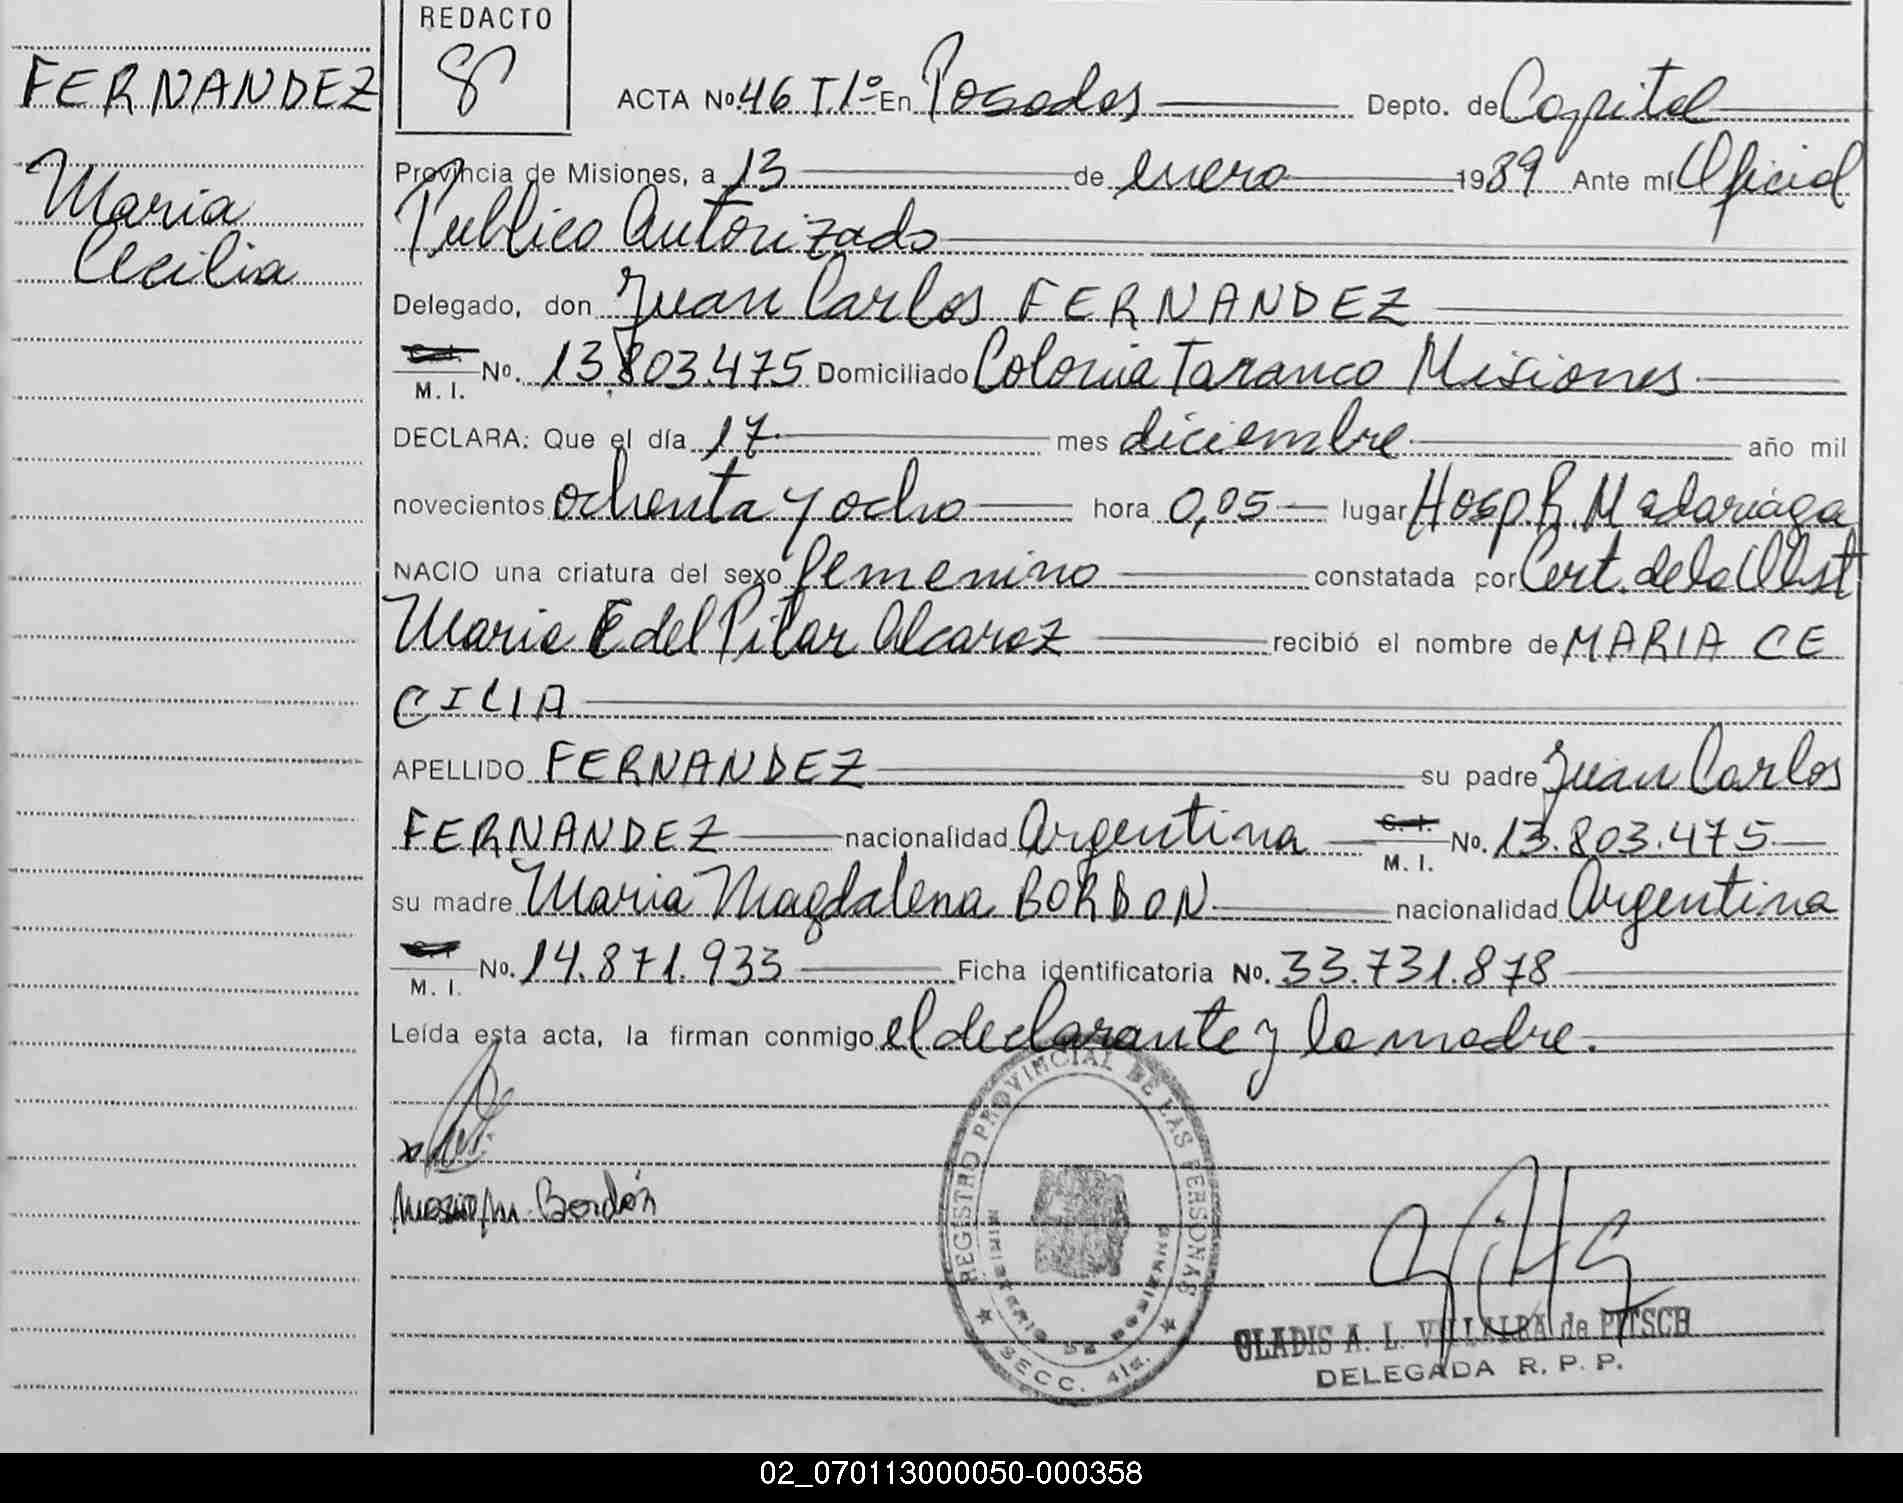 REDACTO
8
FERNANDEZ
Maria
Cecilia
ACTA No. 46 T 1º En Posadas Depto. de Capital
Provincia de Misiones, a 13 de enero 1989 Ante mí Oficial
Publico Autorizado
Delegado, don Juan Carlos FERNANDEZ
C.I. M. I. No. 13.803.475 Domiciliado Colonia Taranco Misiones
DECLARA: Que el día 17 mes diciembre año mil
novecientos ochenta y ocho hora 0,05 lugar Hosp. R. Madariaga
NACIO una criatura del sexo femenino constatada por Cert. de la Obst
Maria E del Pilar Alcaraz recibió el nombre de MARIA CE
CILIA
APELLIDO FERNANDEZ su padre Juan Carlos
FERNANDEZ nacionalidad Argentina C. I. M. I. No. 13.803.475
su madre Maria Magdalena BORDON nacionalidad Argentina
C.I. M. I. No. 14.871.933 Ficha identificatoria No. 33.731.878
Leída esta acta, la firman conmigo el declarante y la madre.
Maria M. Bordón
REGISTRO PROVINCIAL DE LAS PERSONAS
MINISTERIO DE GOBIERNO
SECC. 41a.
GLADIS A. L. VILLALBA de PITSCH
DELEGADA R. P. P.
02_070113000050-000358